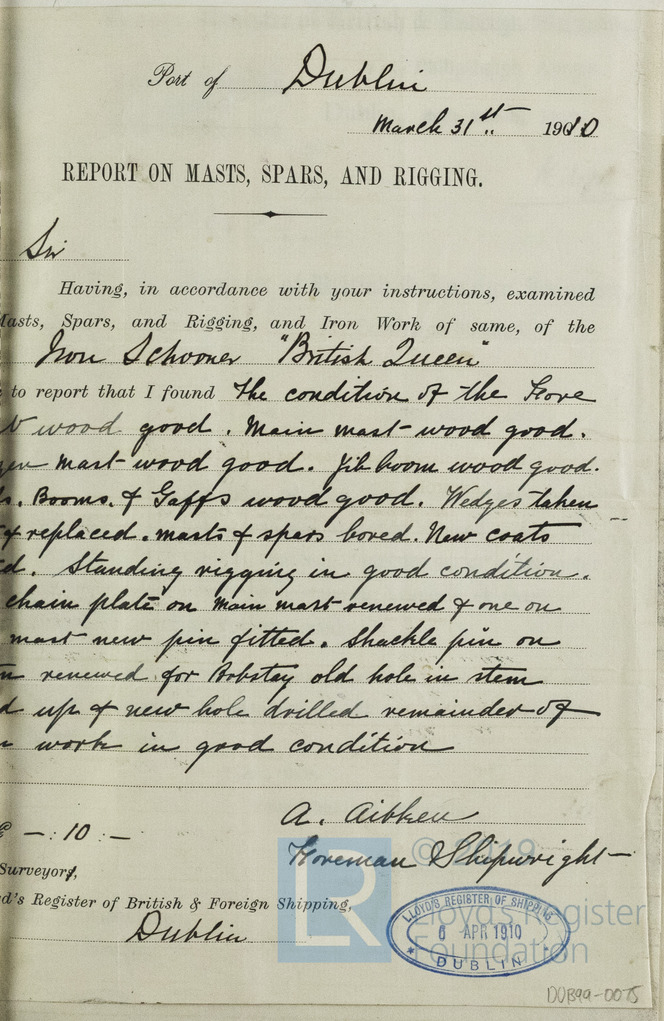 Port of Dublin
March 31st 1910
REPORT ON MASTS, SPARS, AND RIGGING.
Sir
Having, in accordance with your instructions, examined
Masts, Spars, and Rigging, and Iron Work of same, of the
Iron Schooner "British Queen"
to report that I found the condition of the Fore
wood good. Main mast wood good.
zen mast wood good. Jib boom wood good.
s. Booms. & Gaffs wood good. Wedges taken
& replaced. masts & spars bored. New coats
d. Standing rigging in good condition.
chain plate on main mast renewed & one on
mast new pin fitted. Shackle pin on
renewed for Bobstay old hole in stem
d up & new hole drilled remainder of
work in good condition
A. Aitken
Foreman Shipwright
-: 10 :-
Surveyors,
d's Register of British & Foreign Shipping,
Dublin
LLOYD'S REGISTER OF SHIPPING
6 APR 1910
* DUBLIN *
© 2019
Lloyd's Register
Foundation
LR
DUB99-0075